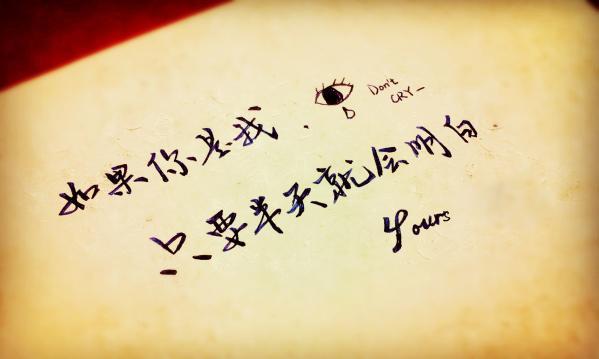 Don't
CRY—
如果你是我.
只要半天就会明白
Yours